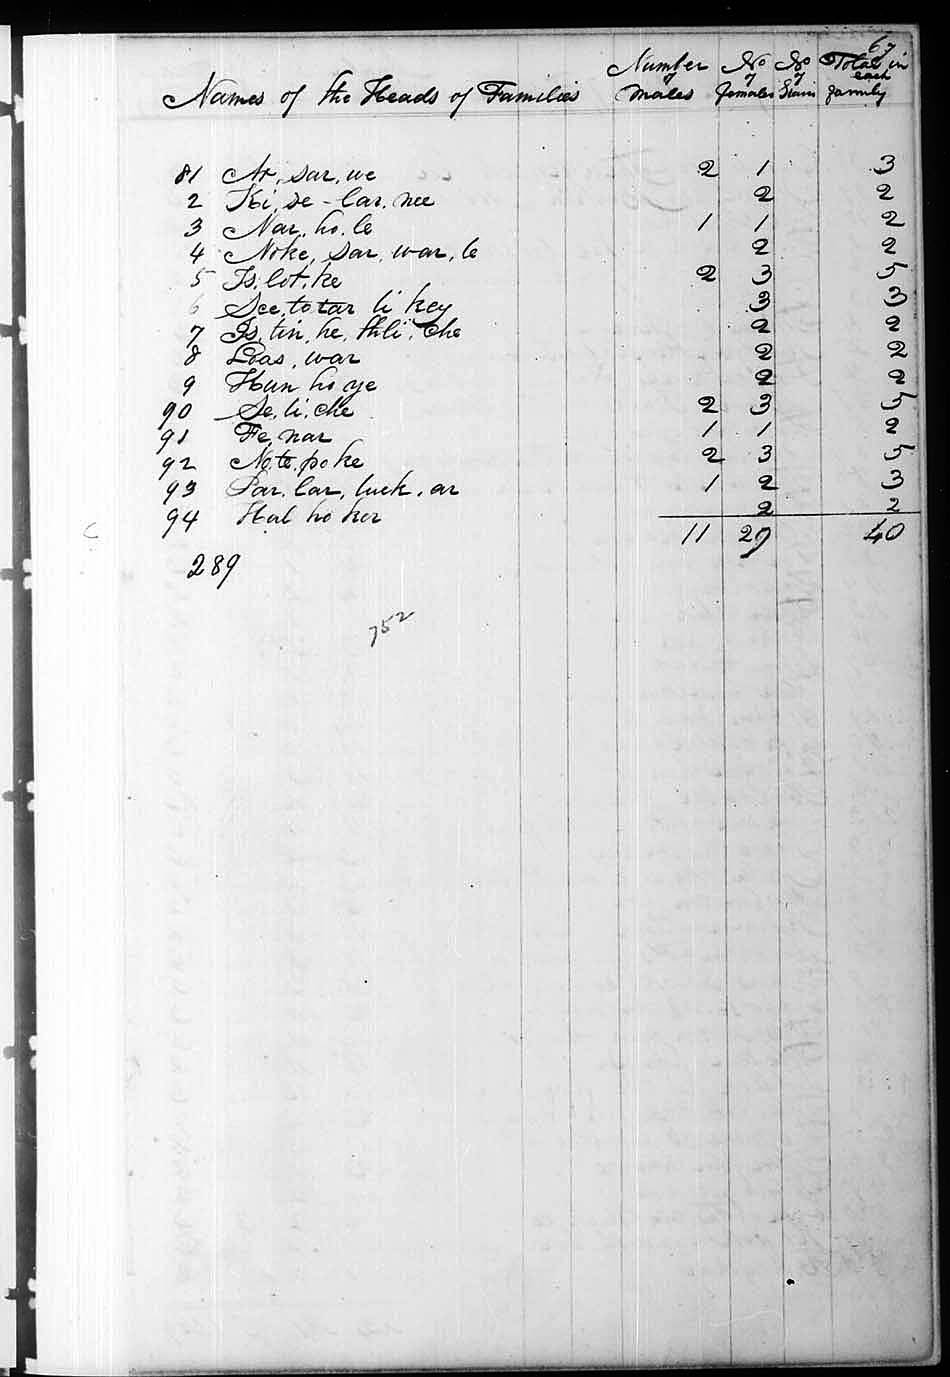 67
Names of the Heads of Families Number of Males No of females No of Slaves Total in each family
81 Ar, sar, we 2 1 3
2 Ki, se - lar, nee 2 2
3 Nar, ho, le 1 1 2
4 Noke, sar, war, le 2 2
5 Is, lot, ke 2 3 5
6 See, to tar li key 3 3
7 Is, tin, he, thli, che 2 2
8 Loas, war 2 2
9 Hun ho ye 2 2
90 Se, li, che 2 3 5
91 Fe, nar 1 1 2
92 No, te, po ke 2 3 5
93 Par, lar, luck, ar 1 2 3
94 Hal ho ker 2 2
11 29 40
289
752